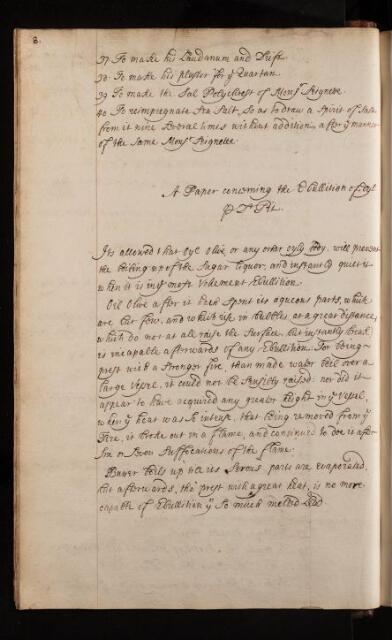 8.
37 To make his Laudanum and Dust.
38 To make his plaster for ye Quartan.
39 To make the Sal Polycrest of Monsr Seignette
40 To reimpregnate Sea Salt, so as to draw a Spirit of Salt
from it nine several times without addition, after ye manner
of the same Monsr Seignette.
A Paper concerning the Ebullition of Oyl
Its allowed that Oyl Olive or any other oyly body, will prevent
the boiling up of the Sugar liquor, and instantly quiet it
when it is in ye most vehement Ebullition.
Oil Olive after it hath spent its aqueous parts, which
are but few, and which rise in bubbles, at a great distance,
which do not at all raise the Surface, but instantly break,
is incapable afterwards of any Ebullition. For being
prest with a stronger fire, than made water boil over a
large Vessel, it could not be sensibly raised: nor did it
appear to have acquired any greater height in ye Vessel,
when ye heat was so intense, that being removed from ye
Fire, it broke out in a flame, and continued to doe it after
Six or Seven Suffocations of the flame.
Butter boils up till its Serous parts are evaporated,
but afterwards, tho' prest with a great heat, is no more
capable of Ebullition yn so much melted Lead